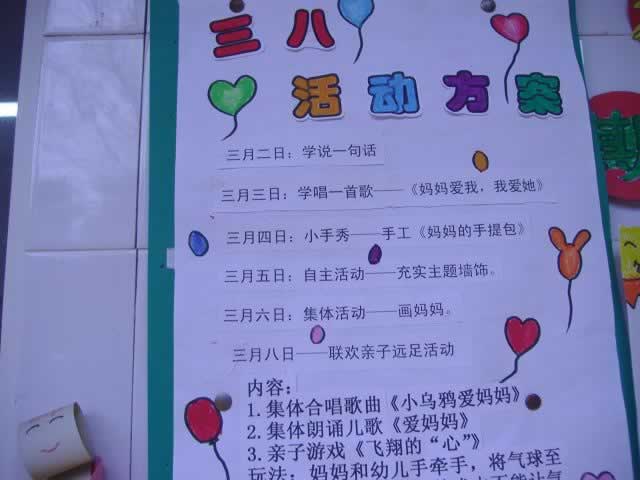 三八
活动方案
三月二日：学说一句话
三月三日：学唱一首歌——《妈妈爱我，我爱她》
三月四日：小手秀——手工《妈妈的手提包》
三月五日：自主活动——充实主题墙饰。
三月六日：集体活动——画妈妈。
三月八日——联欢亲子远足活动
内容：
1.集体合唱歌曲《小乌鸦爱妈妈》
2.集体朗诵儿歌《爱妈妈》
3.亲子游戏《飞翔的“心”》
玩法：妈妈和幼儿手牵手，将气球至